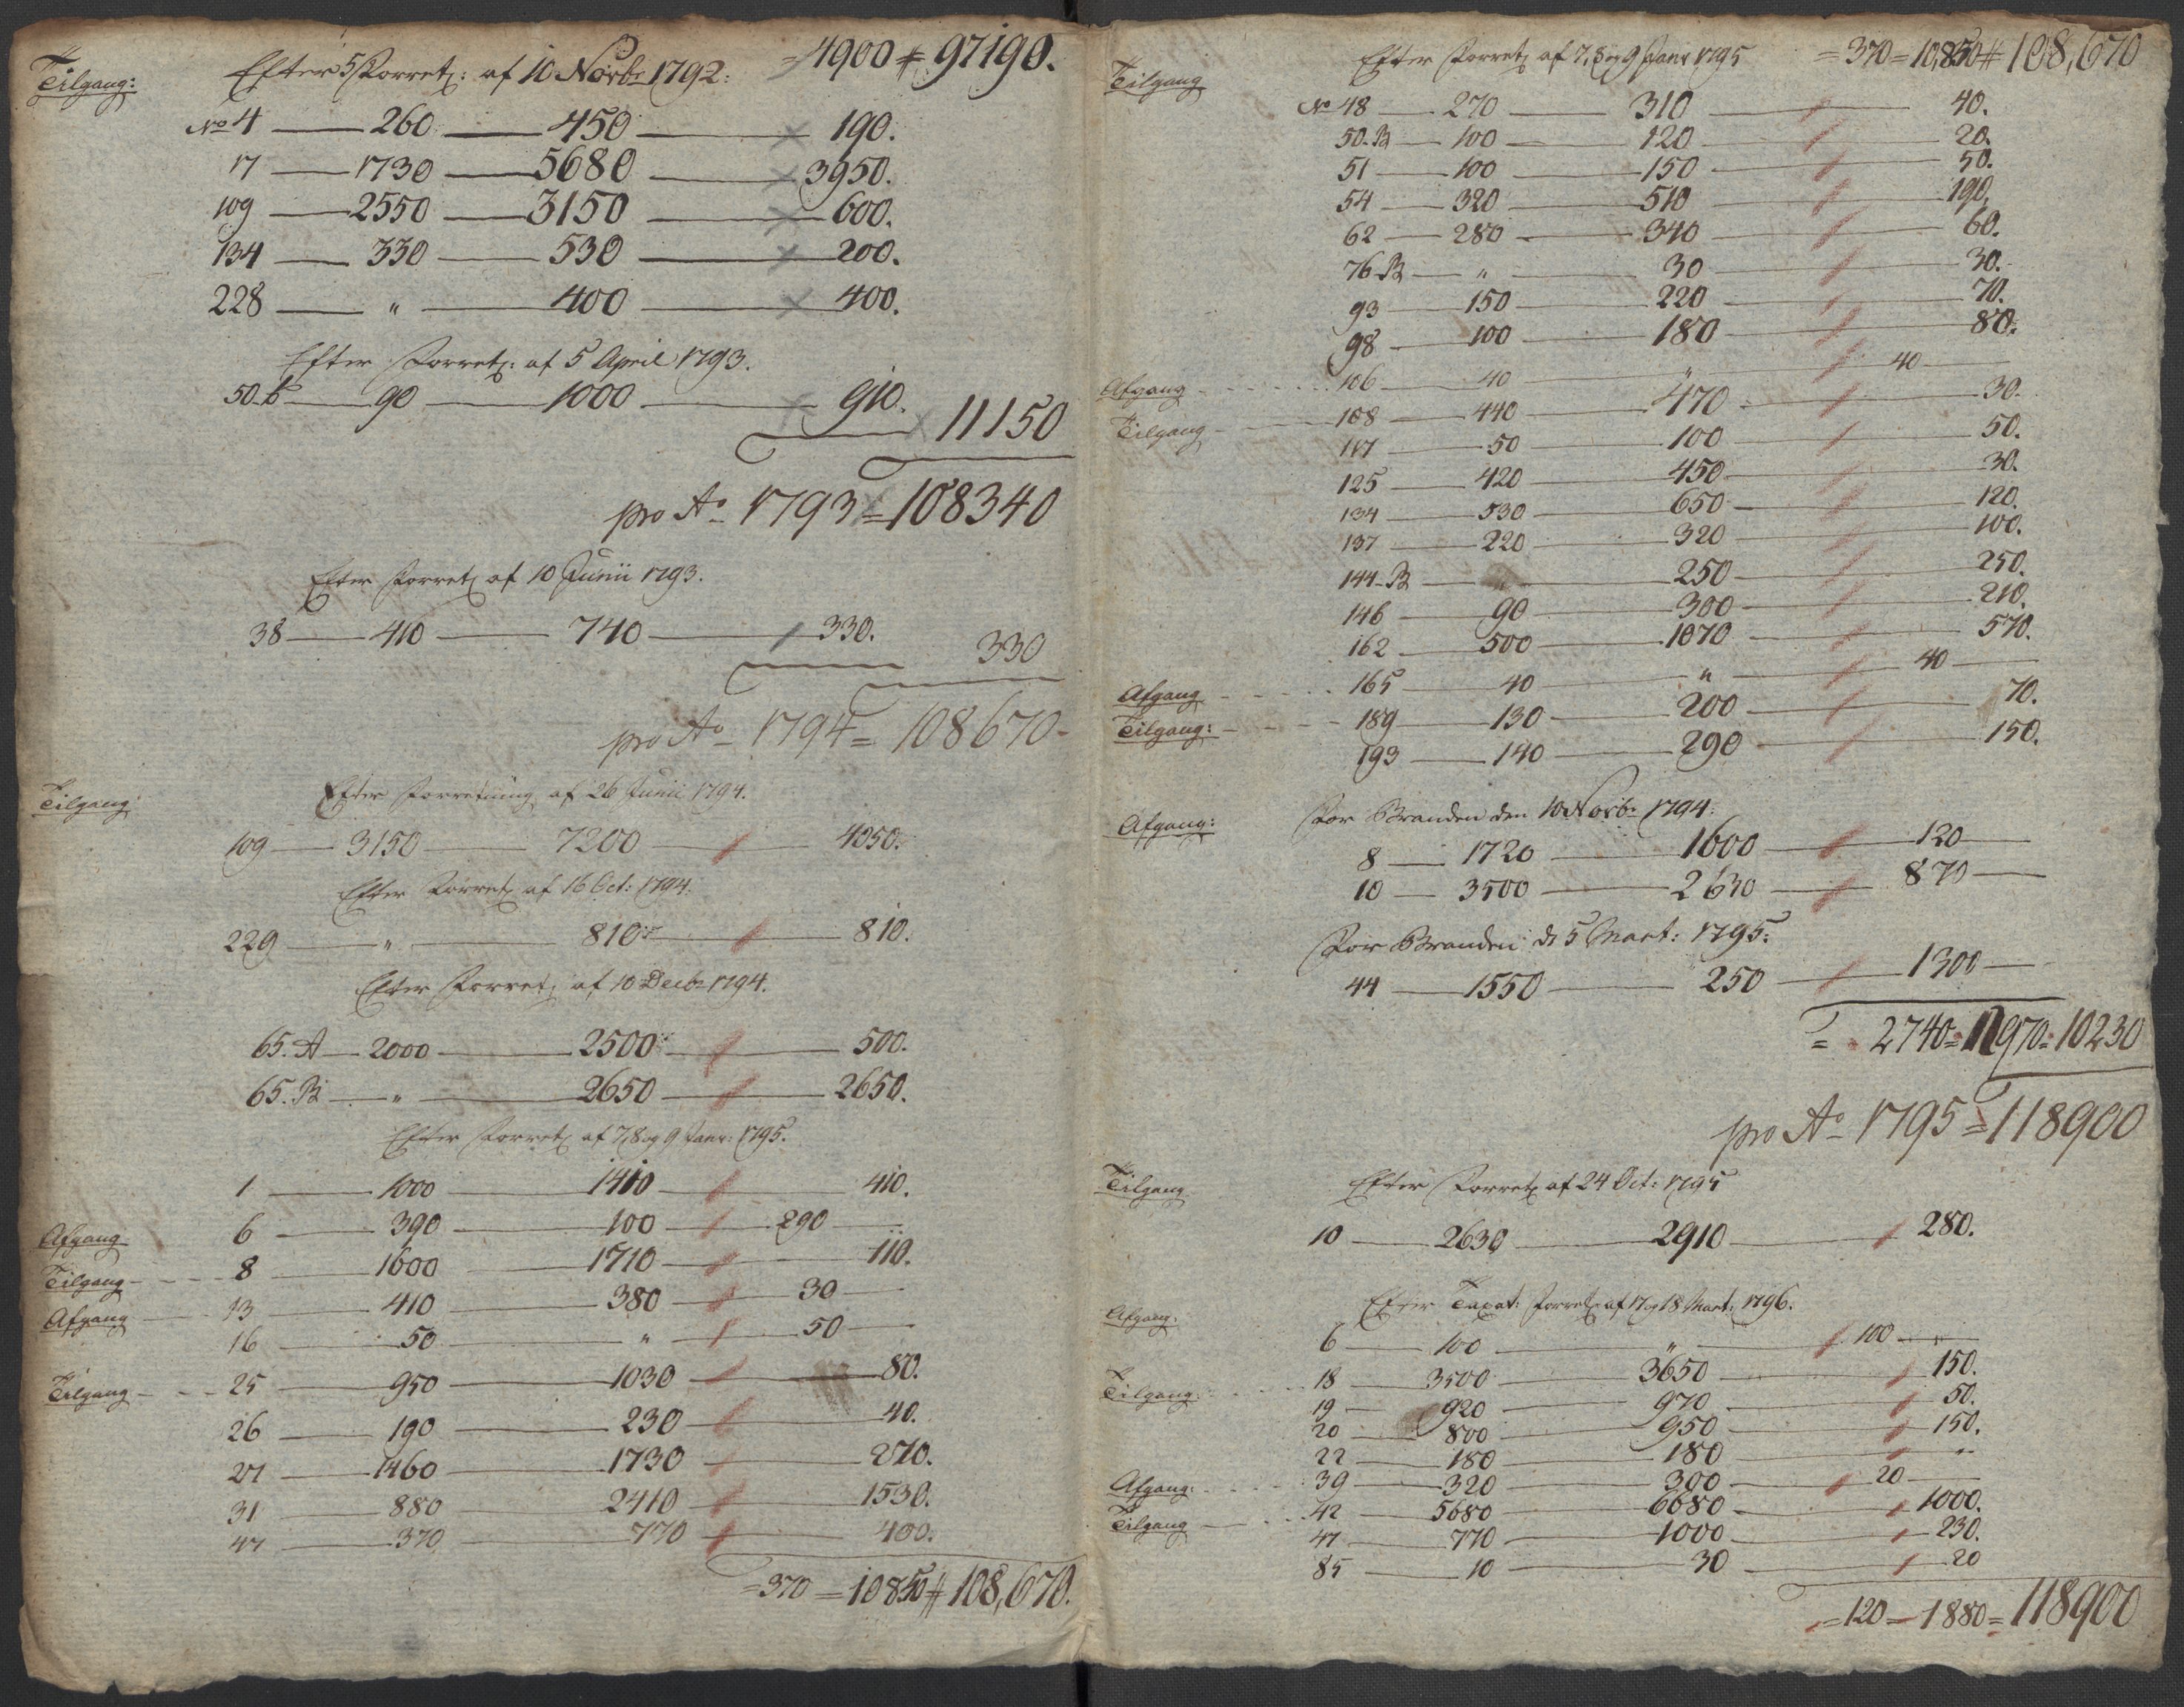 Tilgang: Efter 5 Forretn: af 10 Novbr 1792: = 4900 # 97190.
No 4 — 260 — 450 — 190.
17 — 1730 — 5680 — 3950.
109 — 2550 — 3150 — 600.
134 — 330 — 530 — 200.
228 — " — 400 — 400.
Efter Forretn: af 5 April 1793.
50. b — 90 — 1000 — 910. 11150
pro Ao 1793 = 108340
Efter Forretn af 10 Junii 1793.
38 — 410 — 740 — 330. 330
pro Ao 1794 = 108670
Tilgang Efter Forretning af 26 Junii 1794.
109 — 3150 — 7200 — 4050.
Efter Forretn af 16 Oct: 1794.
229 — " — 810 — 810.
Efter Forretn af 10 Decbr 1794.
65. A — 2000 — 2500 — 500.
65. B — " — 2650 — 2650.
Efter Forretn af 7, 8 og 9 Janr: 1795.
1 — 1000 — 1410 — 410.
Afgang 6 — 390 — 100 — 290 —
Tilgang — 8 — 1600 — 1710 — 110.
Afgang — 13 — 410 — 380 — 30 —
16 — 50 — " — 50 —
Tilgang — 25 — 950 — 1030 — 80.
26 — 190 — 230 — 40.
27 — 1460 — 1730 — 270.
31 — 880 — 2410 — 1530.
47 — 370 — 770 — 400.
= 370 = 10850 # 108,670.
Tilgang Efter Forretn af 7, 8 og 9 Janr 1795 = 370 = 10,850 # 108,670
No 48 — 270 — 310 — 40.
50. B — 100 — 120 — 20.
51 — 100 — 150 — 50.
54 — 320 — 510 — 190.
62 — 280 — 340 — 60.
76 B — " — 30 — 30.
93 — 150 — 220 — 70.
98 — 100 — 180 — 80.
Afgang — 106 — 40 — " — 40 —
Tilgang — 108 — 440 — 470 — 30.
117 — 50 — 100 — 50.
125 — 420 — 450 — 30.
134 — 530 — 650 — 120.
137 — 220 — 320 — 100.
144. B — 250 — 250.
146 — 90 — 300 — 210.
162 — 500 — 1070 — 570.
Afgang — 165 — 40 — " — 40 —
Tilgang: — 189 — 130 — 200 — 70.
193 — 140 — 290 — 150.
Afgang: For Branden den 10 Novbr 1794:
8 — 1720 — 1600 — 120 —
10 — 3500 — 2630 — 870 —
For Branden d. 5 Mart: 1795:
44 — 1550 — 250 — 1300 —
= 2740 = 12970 = 10230
pro Ao 1795 = 118900
Tilgang Efter Forretn af 24 Oct: 1795
10 — 2630 — 2910 — 280.
Efter Taxat: Forretn af 17 og 18 Mart: 1796.
Afgang: 6 — 100 — " — 100 — "
Tilgang: — 18 — 3500 — 3650 — 150.
19 — 920 — 970 — 50.
20 — 800 — 950 — 150.
22 — 180 — 180 — "
Afgang: — 39 — 320 — 300 — 20 —
Tilgang — 42 — 5680 — 6680 — 1000.
47 — 770 — 1000 — 230.
85 — 10 — 30 — 20
= 120 = 1880 = 118900